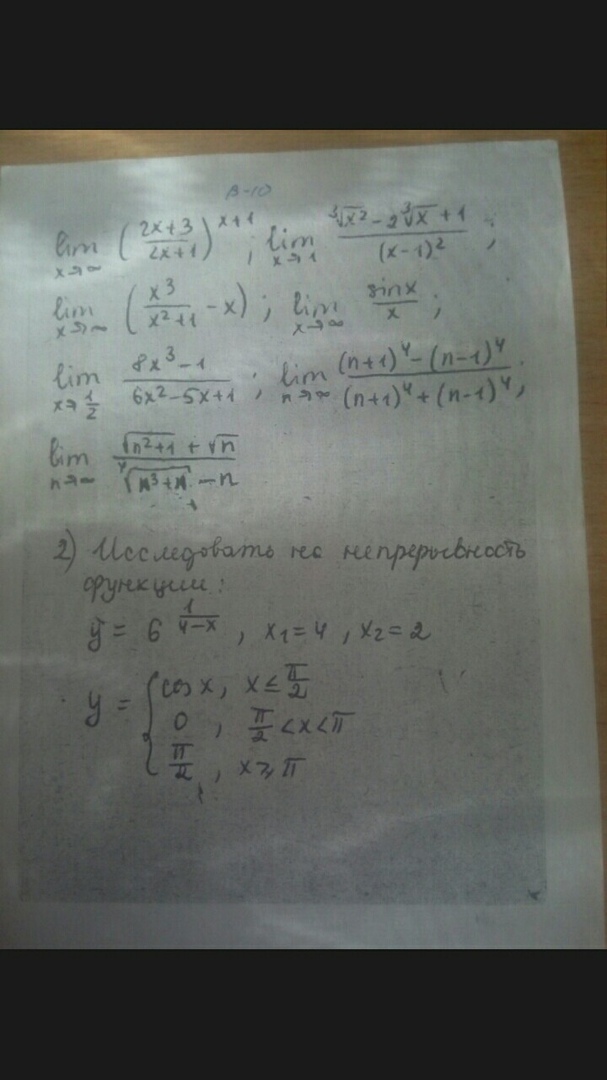 В-10
lim x→∞ ((2x+3)/(2x+1))^(x+1) ; lim x→1 (∛x² − 2∛x + 1)/(x−1)² ;
lim x→∞ (x³/(x²+1) − x) ; lim x→∞ sinx/x ;
lim x→1/2 (8x³−1)/(6x²−5x+1) ; lim n→∞ ((n+1)⁴−(n−1)⁴)/((n+1)⁴+(n−1)⁴) ;
lim n→∞ (√(n²+1) + √n)/(∜(n³+n) − n)
2) Исследовать на непрерывность
функции:
y = 6^(1/(4−x)) , x₁=4 , x₂=2
y = { cos x, x ≤ π/2
0 , π/2 < x < π
π/2 , x ≥ π